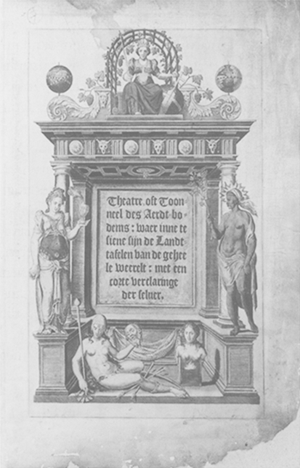 Theatre oft Toon-
neel des Aerdt-bo-
dems: waer inne te
siene sijn de Landt
tafelen van de gehee
le weerelt: met een
corte verclaringe
der selver.